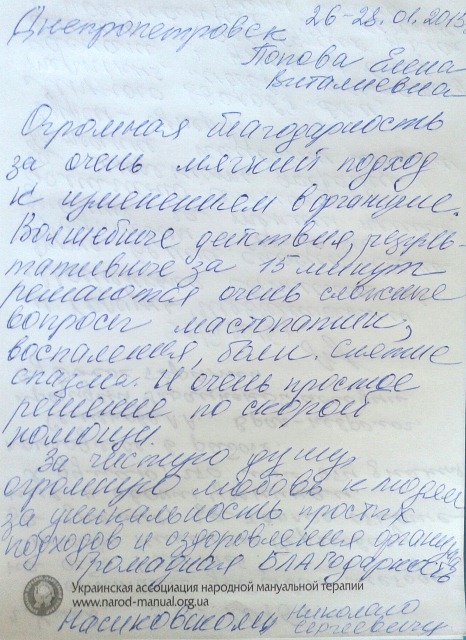 Днепропетровск 26-28.01.2013г.
Попова Елена
Виталиевна
Огромная благодарность
за очень мягкий подход
к изменениям в организме.
Волшебные действия, резуль-
тативные за 15 минут
решаются очень сложные
вопросы мастопатии,
воспаления, боли. Снятие
спазма. И очень простое
решение по скорой
помощи.
За чистую душу,
огромную любовь к людям
за уникальность простых
подходов и оздоровления организма
Громадная БЛАГОдарность
Украинская ассоциация народной мануальной терапии
www.narod-manual.org.ua
Насиковскому Николаю
Сергеевичу